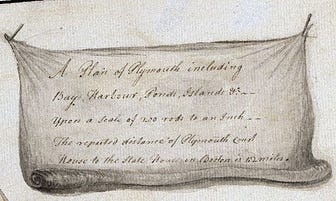 A Plan of Plymouth including
Bays, Harbour, Ponds, Islands &c. --
Upon a Scale of 200 rods to an Inch --
The reported distance of Plymouth Court
House to the State House in Boston is miles.